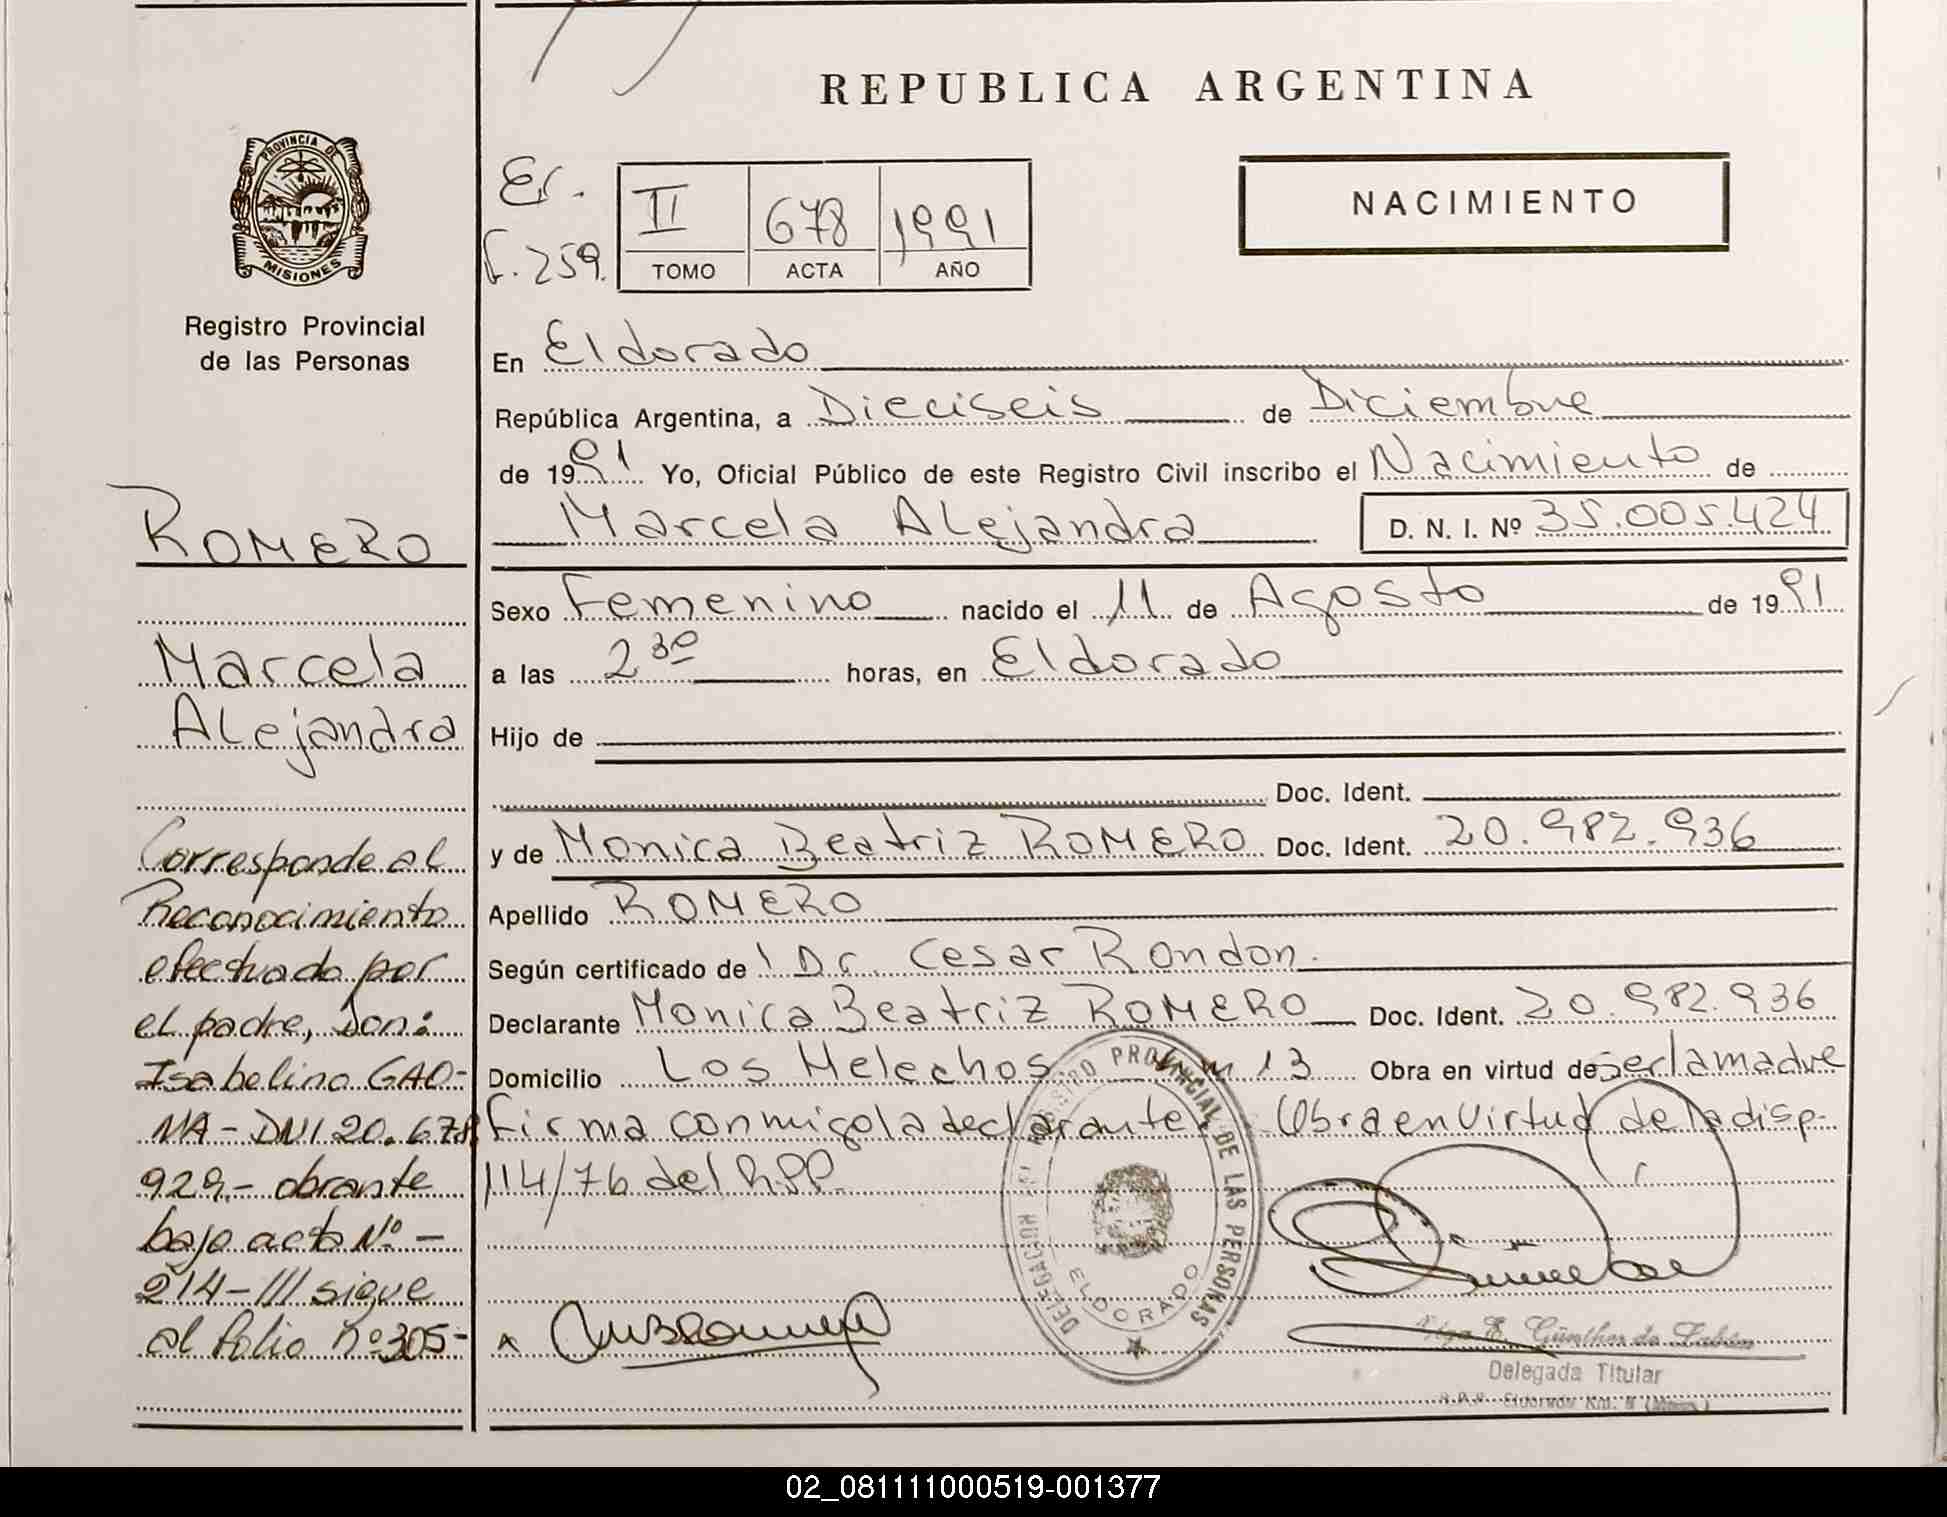 REPUBLICA ARGENTINA
PROVINCIA DE
MISIONES
Registro Provincial
de las Personas
Er.
F. 259.
II 678 1991
TOMO ACTA AÑO
NACIMIENTO
En Eldorado
República Argentina, a Dieciseis de Diciembre
de 1991 Yo, Oficial Público de este Registro Civil inscribo el Nacimiento de
Marcela Alejandra D. N. I. Nº 35.005.424
Sexo Femenino nacido el 11 de Agosto de 1991
a las 2 30 horas, en Eldorado
Hijo de
Doc. Ident.
y de Monica Beatriz ROMERO Doc. Ident. 20.982.936
Apellido ROMERO
Según certificado de Dr. Cesar Rondon.
Declarante Monica Beatriz ROMERO Doc. Ident. 20.982.936
Domicilio Los Helechos Km 13 Obra en virtud de ser la madre
Firma conmigo la declarante. Obra en Virtud de la disp.
114/76 del RPP.
ROMERO
Marcela
Alejandra
Corresponde al
Reconocimiento
efectuado por
el padre, Don:
Isabelino GAO-
NA - DNI 20.678.
929.- obrante
bajo acta Nº -
214-III sigue
al folio nº 305-
DELEGACION DEL REGISTRO PROVINCIAL DE LAS PERSONAS
ELDORADO
Olga E. Günther de Fabian
Delegada Titular
R.P.P. Eldorado Km. 9 (Mnes.)
02_081111000519-001377